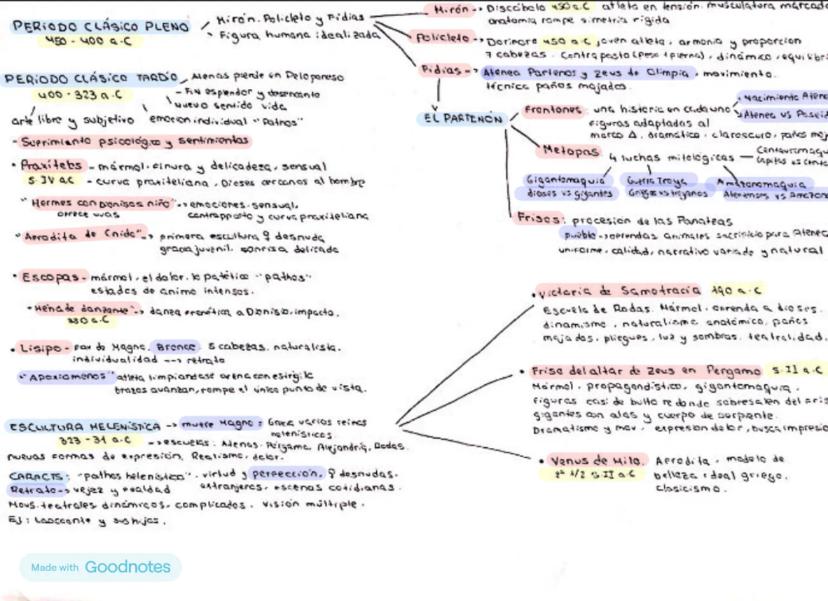 PERIODO CLÁSICO PLENO
450 - 400 a.C
Mirón. Policleto y Fidias
Figura humana idealizada
Mirón. --> Discóbolo 450 a.C atleta en tensión. musculatura marcada
anatomía rompe simetría rígida
Policleto -> Doríforo 450 a.C joven atleta, armonía y proporción
7 cabezas. Contraposto (peso 1 pierna), dinámico, equilibrio
Fidias --> Atenea Partenos y Zeus de Olimpia, movimiento.
técnica paños mojados.
EL PARTENÓN
Frontones: una historia en cada uno
nacimiento Atenea
Atenea vs Poseid
figuras adaptadas al
marco Δ. dramático, claroscuro, paños moj
Metopas
4 luchas mitológicas
Centauromaqu
Gigantomaquia
dioses vs gigantes
Guerra Troya
Griegos vs troyanos
Amazonomaquia
Atenienses vs Amazon
Frisos: procesión de las Panateas
pueblo -> ofrendas animales sacrificio para Atenea
uniforme, calidad, narrativo variado y natural
PERIODO CLÁSICO TARDÍO
400 - 323 a.C
Atenas pierde en Peloponeso
- Fin esplendor y
nuevo sentido vida
arte libre y subjetivo
emoción individual "Pathos"
- sufrimiento psicológico y sentimientos
• Praxiteles - mármol. finura y delicadeza, sensual
S. IV a.C - curva praxiteliana, Dioses cercanos al hombre
"Hermes con Dionisos niño" --> emociones. sensual.
ofrece uvas contrapposto y curva praxiteliana
"Afrodita de Cnido" -> primera escultura ♀ desnuda
gracia juvenil. sonrisa delicada
• Escopas - mármol, el dolor. lo patético "pathos"
estados de ánimo intensos.
"Ménade danzante" -> danza frenética a Dionisio, impacto.
330 a.C
• Lisipo - fav de Magno, Bronce 8 cabezas, naturalista.
individualidad --> retrato
"Apoxiomenos" atleta limpiándose arena con estrígile
brazos avanzan, rompe el único punto de vista.
ESCULTURA HELENÍSTICA -> muere Magno: Grecia varios reinos
323 - 31 a.C helenísticos.
-> escuelas: Atenas. Pérgamo, Alejandría, Rodas.
nuevas formas de expresión, Realismo, dolor.
CARACTS: "pathos helenístico", virtud y perfección, ♀ desnudas.
Retrato -> vejez y fealdad extranjeros, escenas cotidianas.
Movs. teatrales dinámicos, complicados. visión múltiple.
EJ: Laocoonte y sus hijos.
• Victoria de Samotracia 190 a.C
Escuela de Rodas. Mármol. ofrenda a dioses.
dinamismo, naturalismo anatómico, paños
mojados, pliegues, luz y sombras, teatralidad.
• Friso del altar de Zeus en Pergamo S. II a.C
Mármol. propagandístico, gigantomaquia,
figuras casi de bulto redondo sobresalen del friso
gigantes con alas y cuerpo de serpiente.
Dramatismo y mov, expresión dolor, busca impresio
• Venus de Milo. Afrodita, modelo de
2ª 1/2 S. II a.C belleza ideal griego.
clasicismo.
Made with Goodnotes